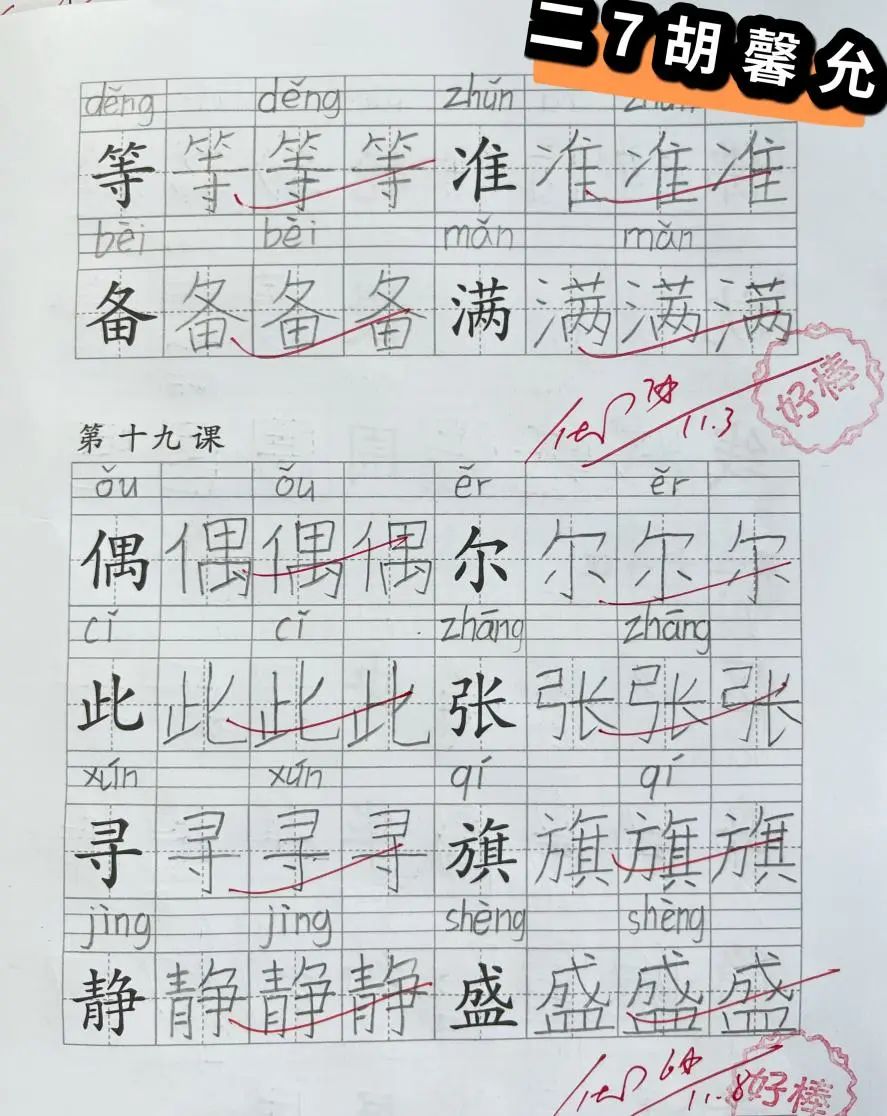 二7胡馨允
děng děng zhǔn zhǔn
等 等 等 等 准 准 准 准
bèi bèi mǎn mǎn
备 备 备 备 满 满 满 满
好棒
11.3
第十九课
ǒu ǒu ěr ěr
偶 偶 偶 偶 尔 尔 尔 尔
cǐ cǐ zhāng zhāng
此 此 此 此 张 张 张 张
xún xún qí qí
寻 寻 寻 寻 旗 旗 旗 旗
jìng jìng shèng shèng
静 静 静 静 盛 盛 盛 盛
11.8
好棒